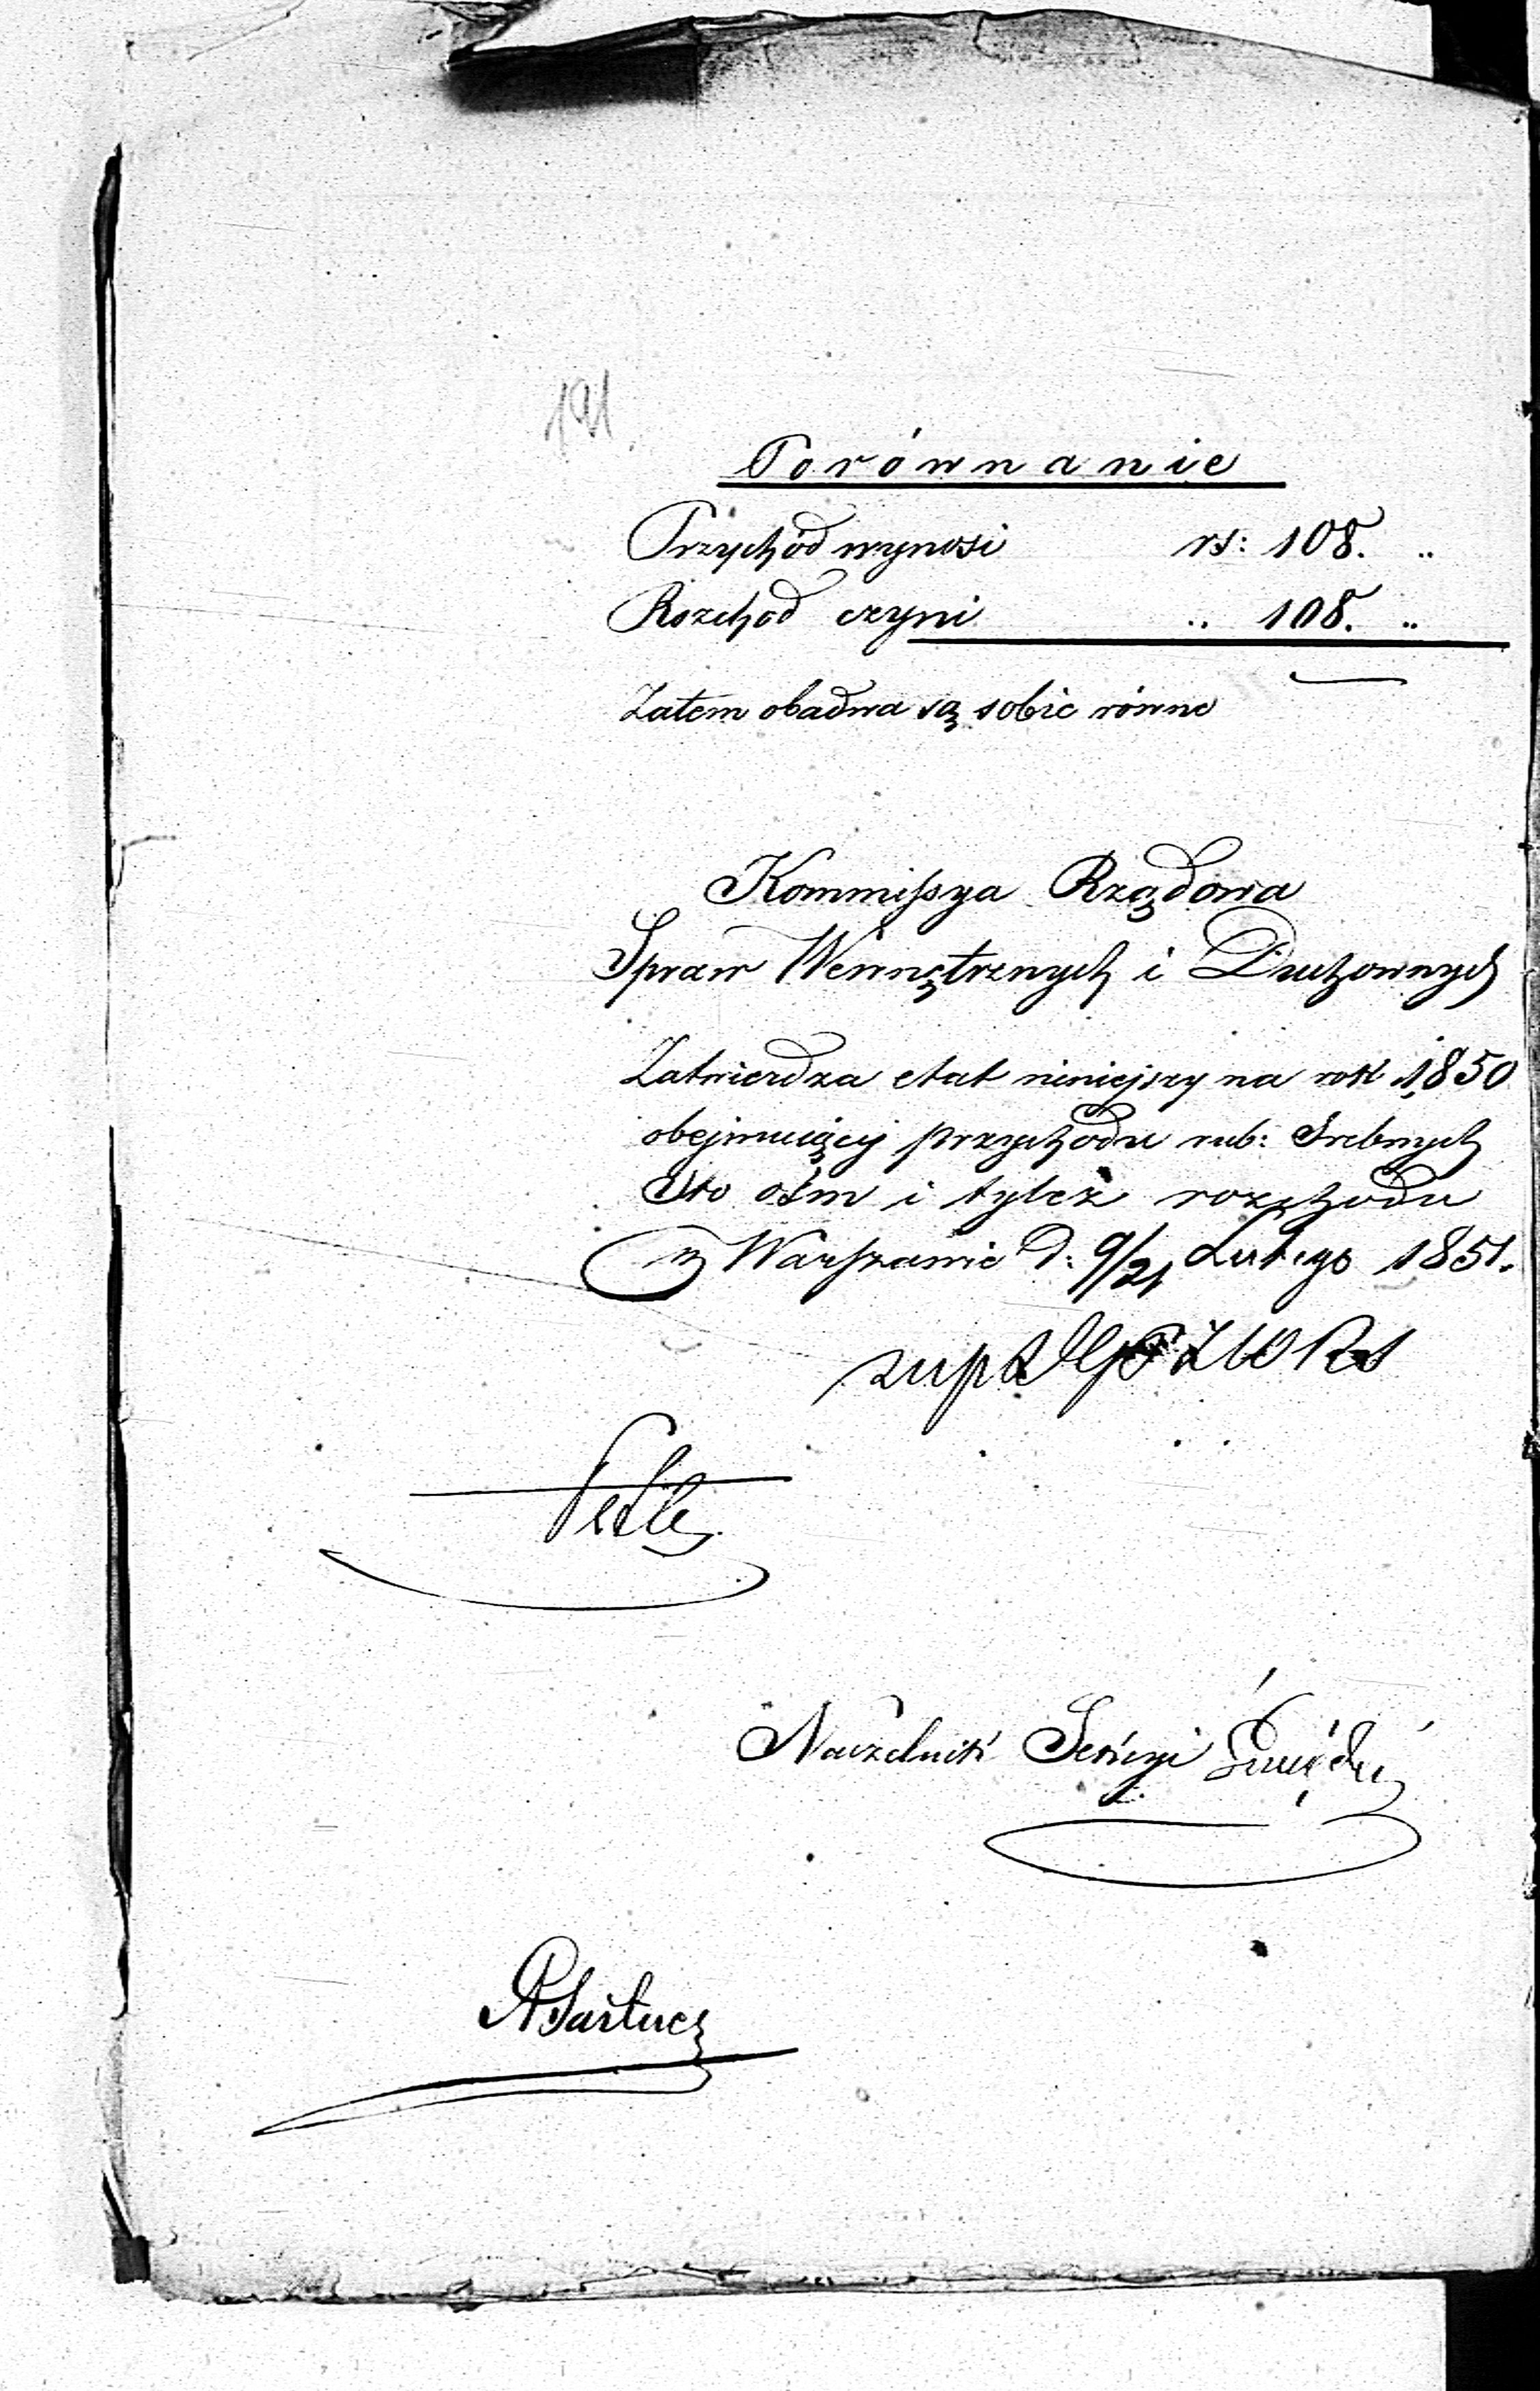 191
Porównanie
Przychód wynosi rs: 108. "
Rozchod czyni " 108. "
Zatem obadwa są sobie równe
Kommissya Rządowa
Spraw Wewnętrznych i Duchownych
Zatwierdza etat niniejszy na rok 1850
obejmuiący przychodu rub: Srebnych
Sto ośm i tyleż rozchodu
w Warszawie d: 9/21 Lutego 1851.
Naczelnik Sekcyi